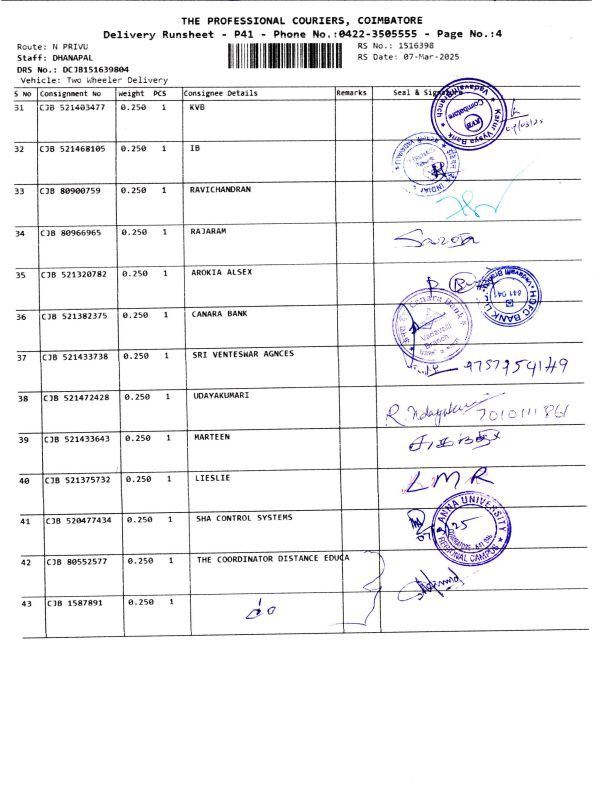 THE PROFESSIONAL COURIERS, COIMBATORE
Delivery Runsheet - P41 - Phone No.:0422-3505555 - Page No.:4
Route: N PRIVU RS No.: 1516398
Staff: DHANAPAL RS Date: 07-Mar-2025
DRS No.: DCJB151639804
Vehicle: Two Wheeler Delivery
S No Consignment No Weight PCS Consignee Details Remarks Seal &
31 CJB 521403477 0.250 1 KVB
Karur Vysya Bank
Vadavalli Branch
KVB
Coimbatore
32 CJB 521468105 0.250 1 IB
33 CJB 80900759 0.250 1 RAVICHANDRAN
34 CJB 80966965 0.250 1 RAJARAM
Saroja
35 CJB 521320782 0.250 1 AROKIA ALSEX
HDFC BANK
641 041
36 CJB 521382375 0.250 1 CANARA BANK
Canara Bank
Vadavalli
Branch
37 CJB 521433738 0.250 1 SRI VENTESWAR AGNCES
9787954149
38 CJB 521472428 0.250 1 UDAYAKUMARI
R. Udayakumari 7010111861
39 CJB 521433643 0.250 1 MARTEEN
40 CJB 521375732 0.250 1 LIESLIE
LMR
41 CJB 520477434 0.250 1 SHA CONTROL SYSTEMS
ANNA UNIVERSITY
REGIONAL CAMPUS
42 CJB 80552577 0.250 1 THE COORDINATOR DISTANCE EDUCA
43 CJB 1587891 0.250 1
do